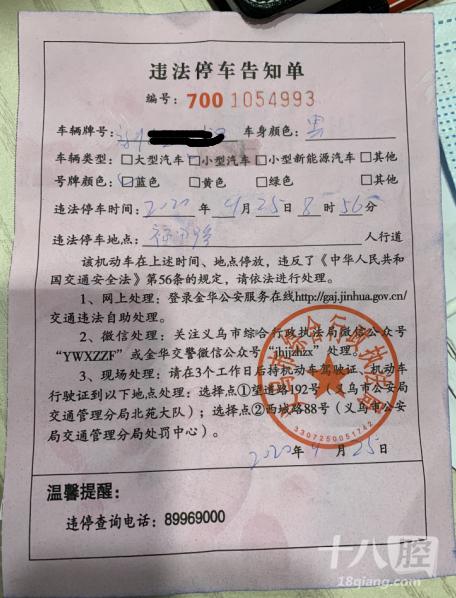 违法停车告知单
编号：700 1054993
车辆牌号： 车身颜色：黑
车辆类型：□大型汽车 □小型汽车 □小型新能源汽车 □其他
号牌颜色 □蓝色 □黄色 □绿色 □其他
违法停车时间：2020 年 4月 25日 8时 56分
违法停车地点： 人行道
该机动车在上述时间、地点停放，违反了《中华人民共和
国交通安全法》第56条的规定，请依法进行处理。
1、网上处理：登录金华公安服务在线http://gaj.jinhua.gov.cn/
交通违法自助处理。
2、微信处理：关注义乌市综合行政执法局微信公众号
“YWXZZF”或金华交警微信公众号“jhjjzhzx”处理。
3、现场处理：请在3个工作日后持机动车驾驶证、机动车
行驶证到以下地点处理：选择点①望道路192号（义乌市公安局
交通管理分局北苑大队）；选择点②西城路88号（义乌市公安
局交通管理分局处罚中心）。
义乌市综合行政执法局
3307250051742
2020年 4 月 25 日
温馨提醒：
违停查询电话：89969000
十八腔
18qiang.com